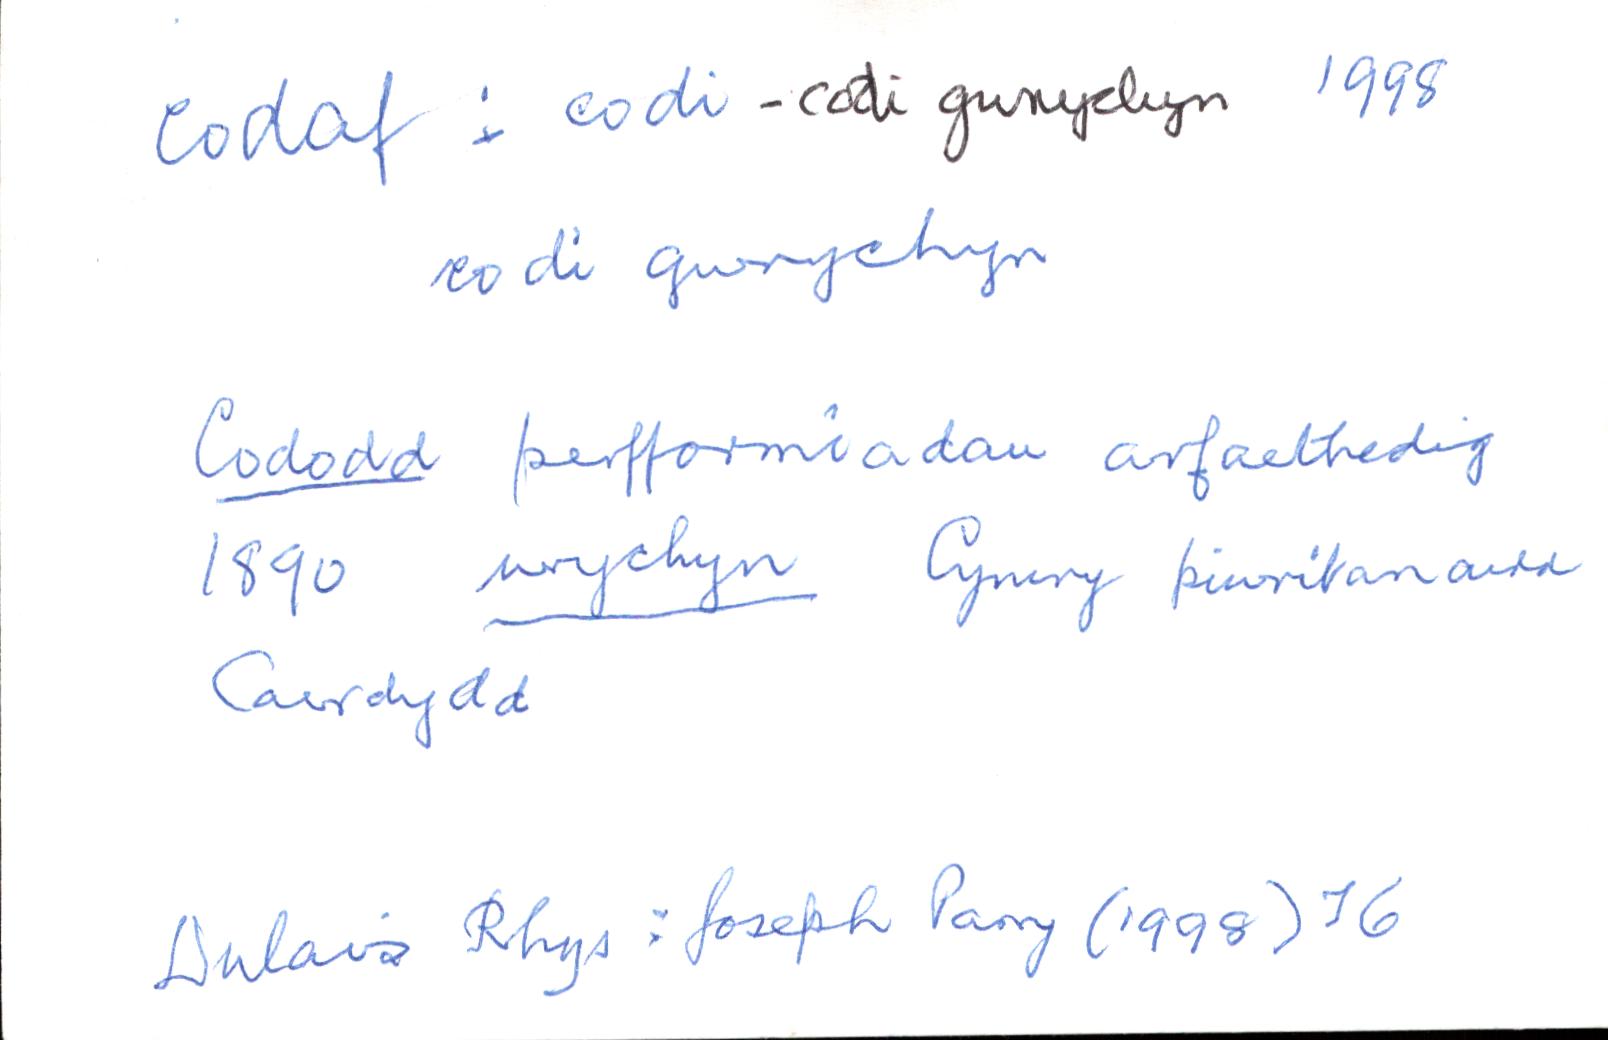 codaf : codi - codi gwrychyn 1998
codi gwrychyn
Cododd perfformiadau arfaethedig
1890 wrychyn Cymry piwritanaidd
Caerdydd
Dulais Rhys : Joseph Parry (1998) 76